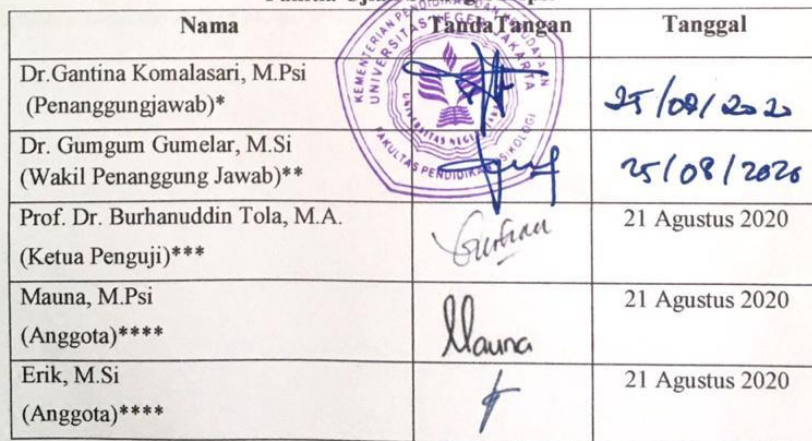 Nama Tanda Tangan Tanggal
Dr.Gantina Komalasari, M.Psi
(Penanggungjawab)*
25/08/2020
Dr. Gumgum Gumelar, M.Si
(Wakil Penanggung Jawab)**
25/08/2020
Prof. Dr. Burhanuddin Tola, M.A.
(Ketua Penguji)***
21 Agustus 2020
Mauna, M.Psi
(Anggota)****
Mauna
21 Agustus 2020
Erik, M.Si
(Anggota)****
21 Agustus 2020
KEMENTERIAN PENDIDIKAN DAN KEBUDAYAAN
UNIVERSITAS NEGERI JAKARTA
UNIVERSITAS NEGERI
FAKULTAS PENDIDIKAN PSIKOLOGI